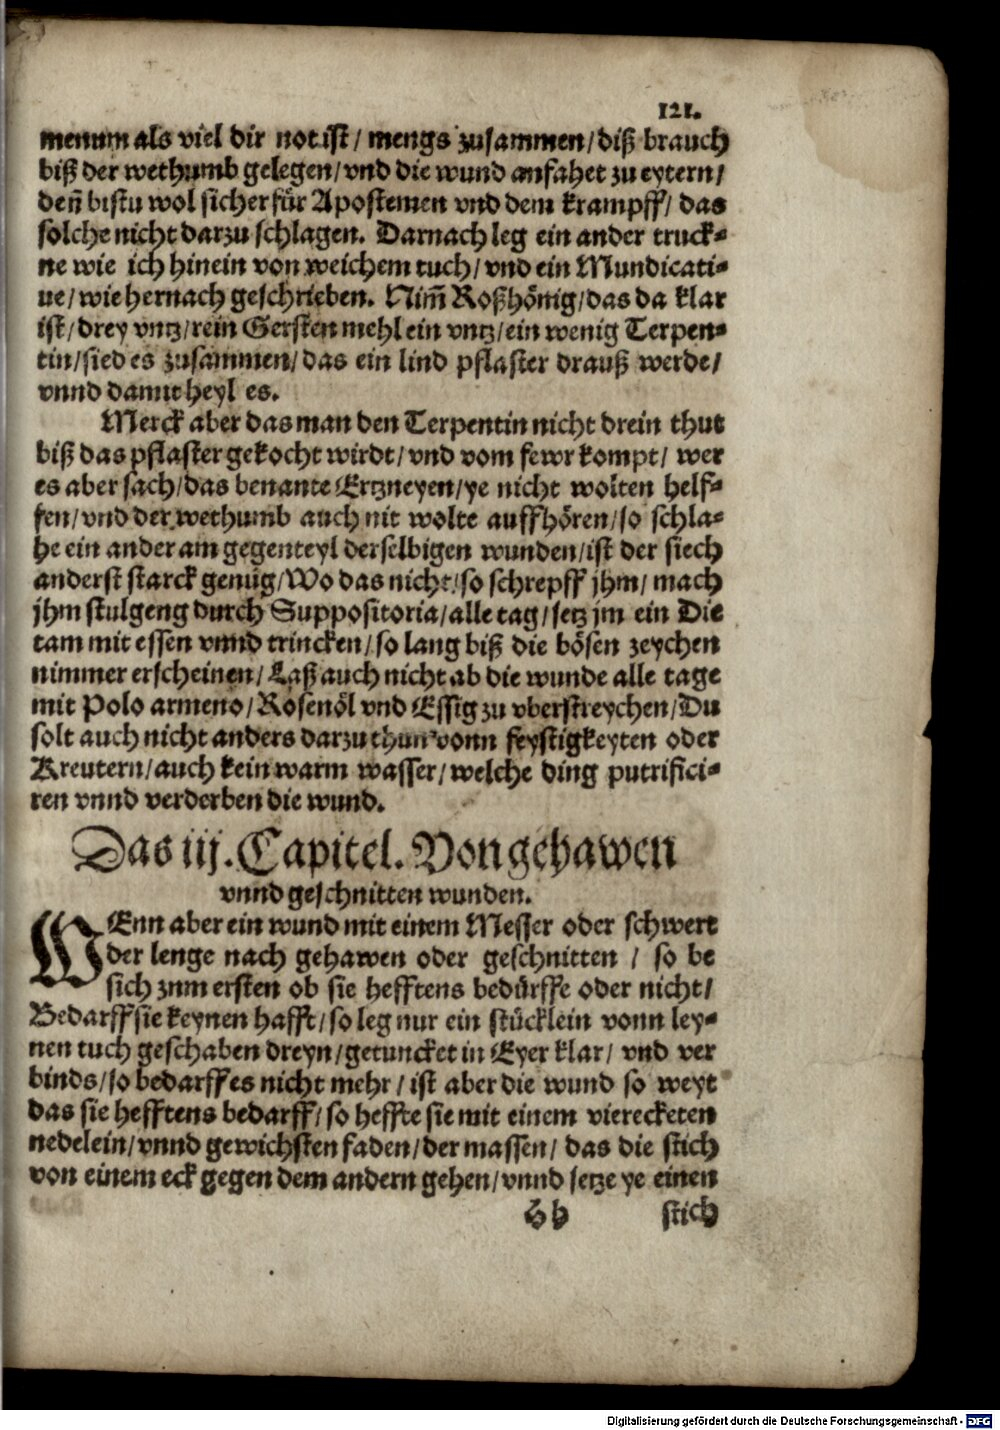 121.
menum als viel dir not ist / mengs zusammen / diß brauch
biß der wethumb gelegen / vnd die wund anfahet zu eytern /
deñ bistu wol sicher für Apostemen vnd dem krampff / das
solche nicht darzu schlagen. Darnach leg ein ander truck⸗
ne wie ich hinein von weichem tuch / vnd ein Mundicati⸗
ue / wie hernach geschrieben. Nim̃ Roßhönig / das da klar
ist / drey vntz / rein Gersten mehl ein vntz / ein wenig Terpen⸗
tin / sied es zusammen / das ein lind pflaster drauß werde /
vnnd damit heyl es.
Merck aber das man den Terpentin nicht drein thut
biß das pflaster gekocht wirdt / vnd vom fewr kompt / wer
es aber sach / das benante Ertzneyen / ye nicht wolten helf⸗
fen / vnd der wethumb auch nit wolte auffhören / so schla⸗
he ein ander am gegenteyl derselbigen wunden / ist der siech
anderst starck genüg / Wo das nicht / so schrepff jhm / mach
jhm stulgeng durch Suppositoria / alle tag / setz jm ein Die
tam mit essen vnnd trincken / so lang biß die bösen zeychen
nimmer erscheinen / Laß auch nicht ab die wunde alle tage
mit Polo armeno / Rosenöl vnd Essig zu vberstreychen / Du
solt auch nicht anders darzu thun vonn feystigkeyten oder
Kreutern / auch kein warm wasser / welche ding putrifici⸗
ren vnnd verderben die wund.
Das iij. Capitel. Von gehawen
vnnd geschnitten wunden.
WEnn aber ein wund mit einem Messer oder schwert
der lenge nach gehawen oder geschnitten / so be
sich znm ersten ob sie hefftens bedürffe oder nicht /
Bedarff sie keynen hafft / so leg nur ein stücklein vonn ley⸗
nen tuch geschaben dreyn / getuncket in Eyer klar / vnd ver
binds / so bedarff es nicht mehr / ist aber die wund so weyt
das sie hefftens bedarff / so heffte sie mit einem vierecketen
nedelein / vnnd gewichsten faden / der massen / das die stich
von einem eck gegen dem andern gehen / vnnd setze ye einen
Hh stich
Digitalisierung gefördert durch die Deutsche Forschungsgemeinschaft - DFG